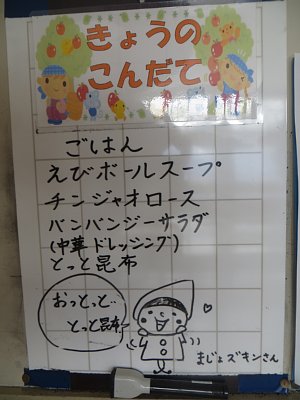 きょうの
こんだて
ごはん
えびボールスープ
チンジャオロース
バンバンジーサラダ
(中華ドレッシング)
とっと昆布
おっとっと..
とっと昆布-
まじょズキンさん